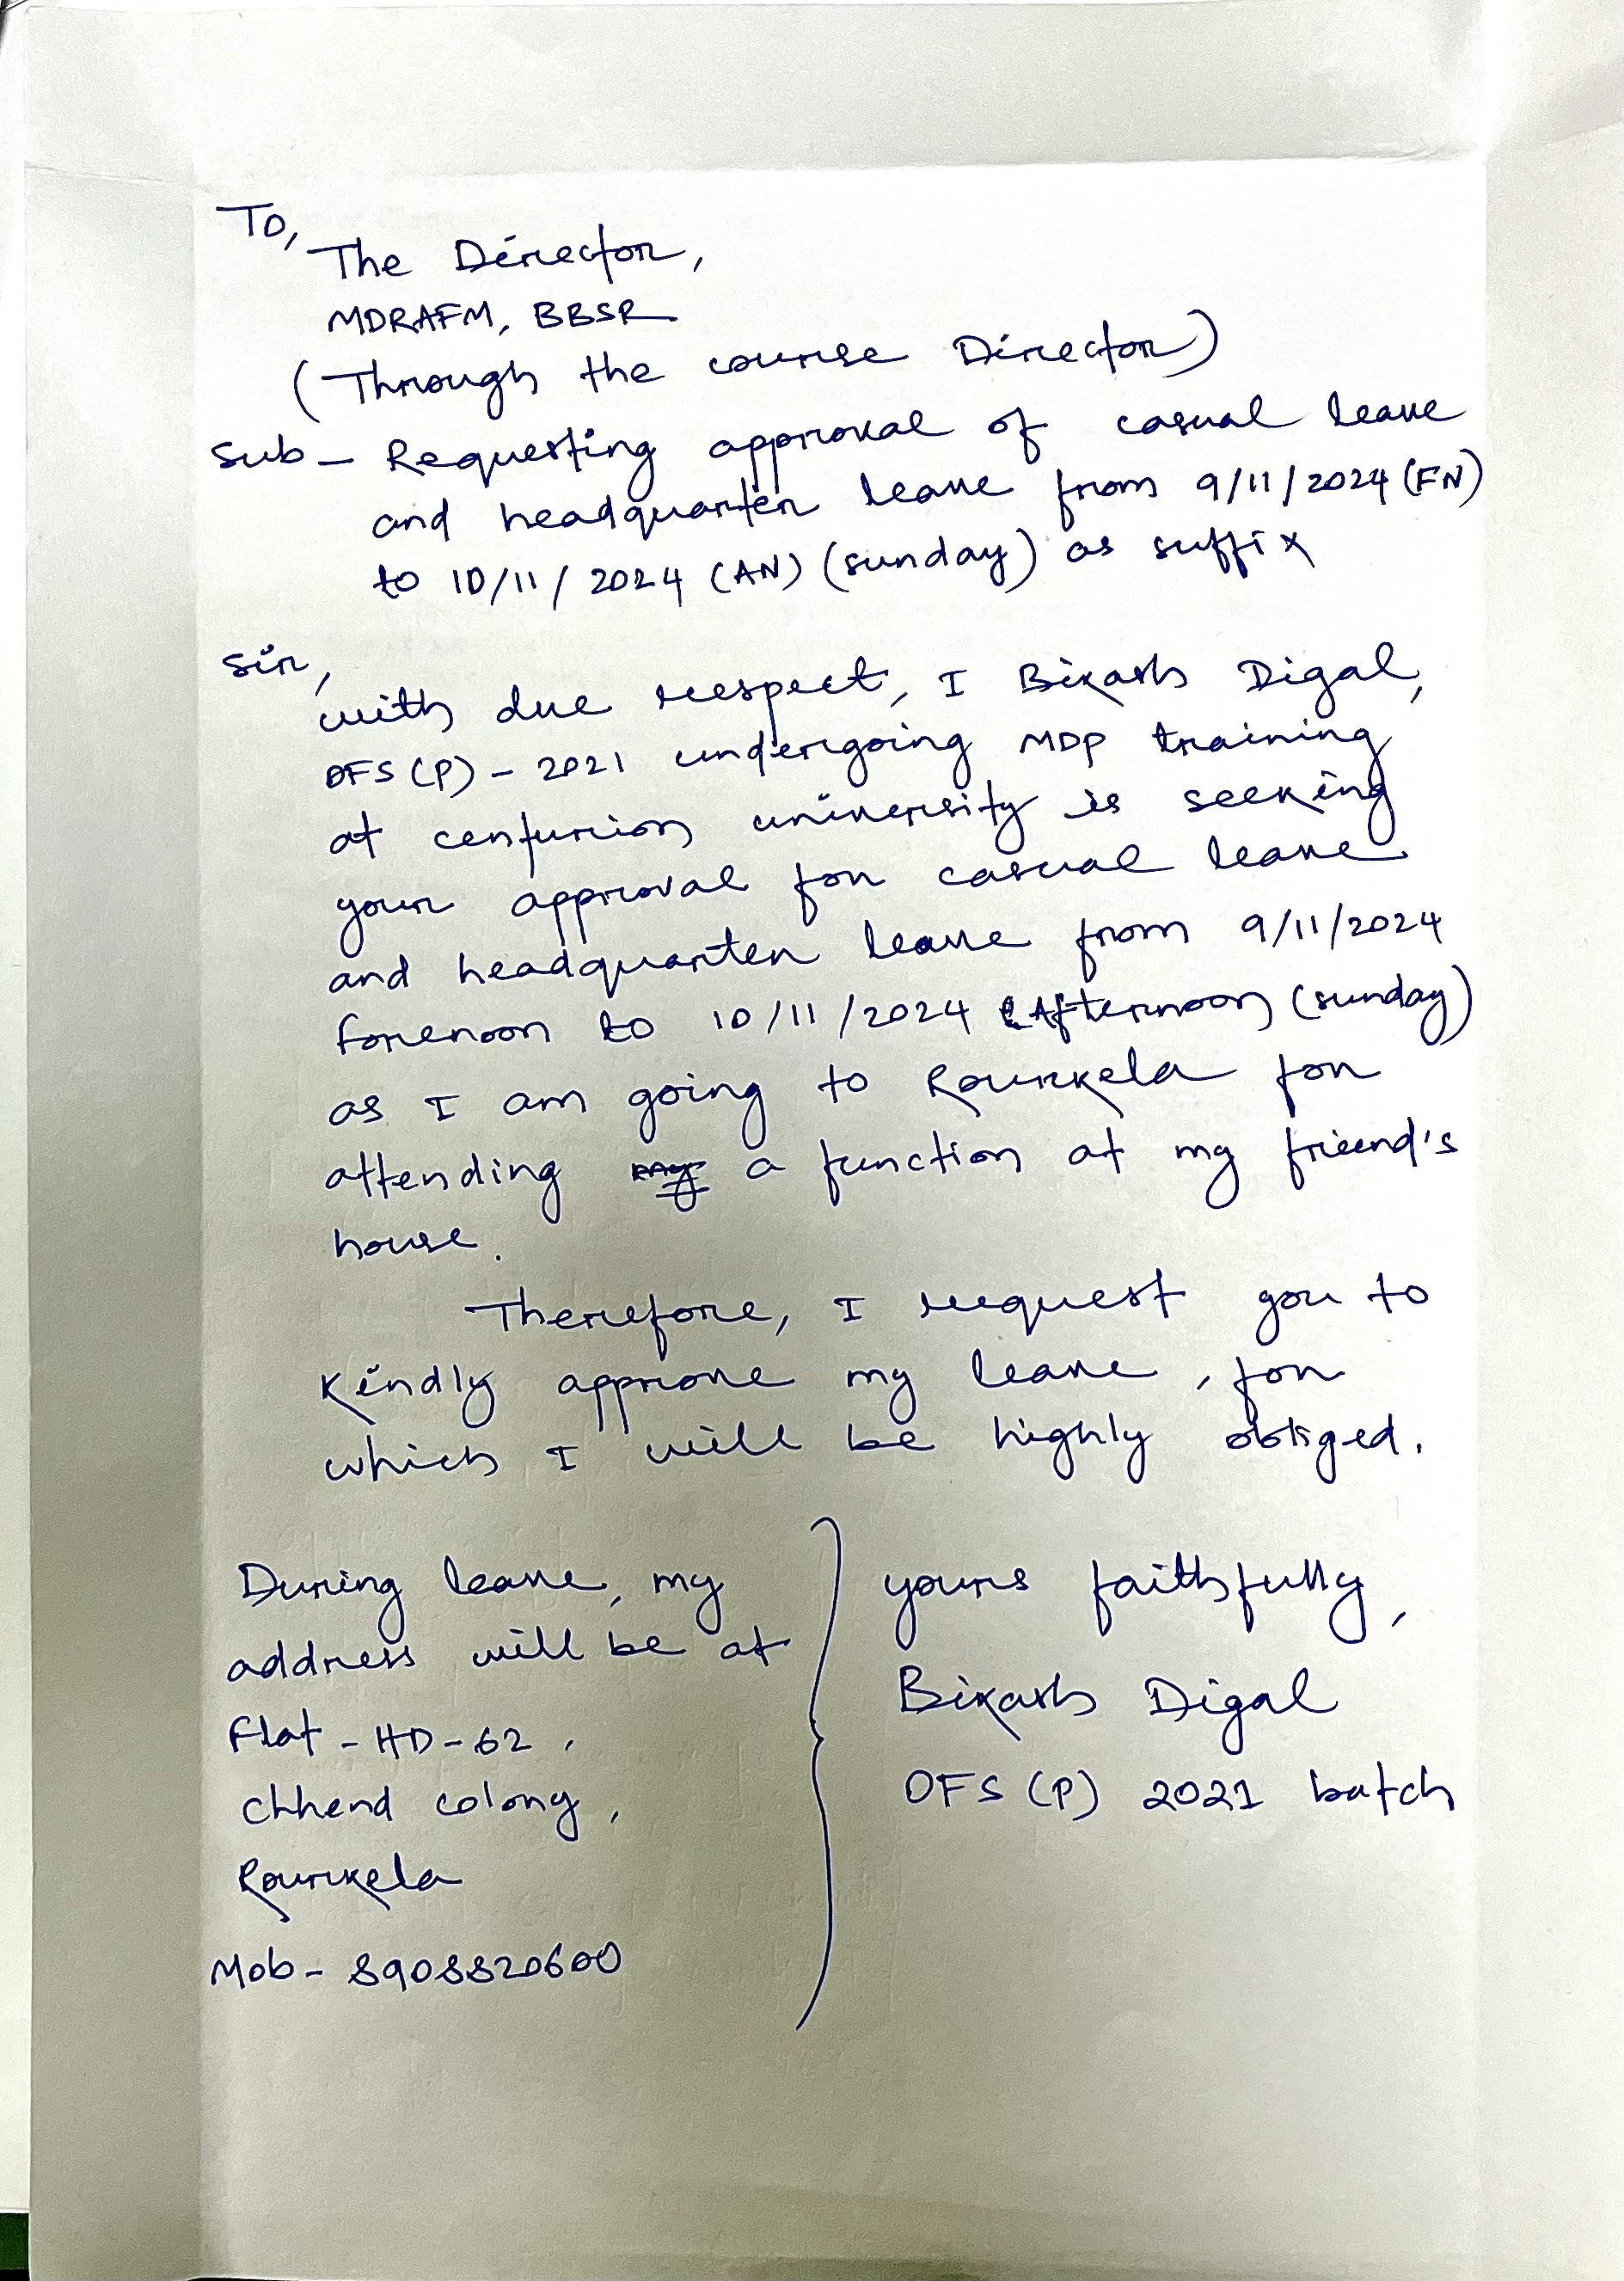 To,
The Director,
MDRAFM, BBSR
(Through the course Director)
Sub - Requesting approval of casual leave
and headquarter leave from 9/11/2024 (FN)
to 10/11/2024 (AN) (sunday) as suffix
Sir,
with due respect, I Bikash Digal,
OFS (P) - 2021 undergoing MDP training
at centurion university is seeking
your approval for casual leave
and headquarter leave from 9/11/2024
forenoon to 10/11/2024 Afternoon (sunday)
as I am going to Rourkela for
attending a function at my friend's
house.
Therefore, I request you to
kindly approve my leave, for
which I will be highly obliged.
During leave, my
address will be at
Flat - HD-62,
chhend colony,
Rourkela
Mob - 8908820600
yours faithfully,
Bikash Digal
OFS (P) 2021 batch